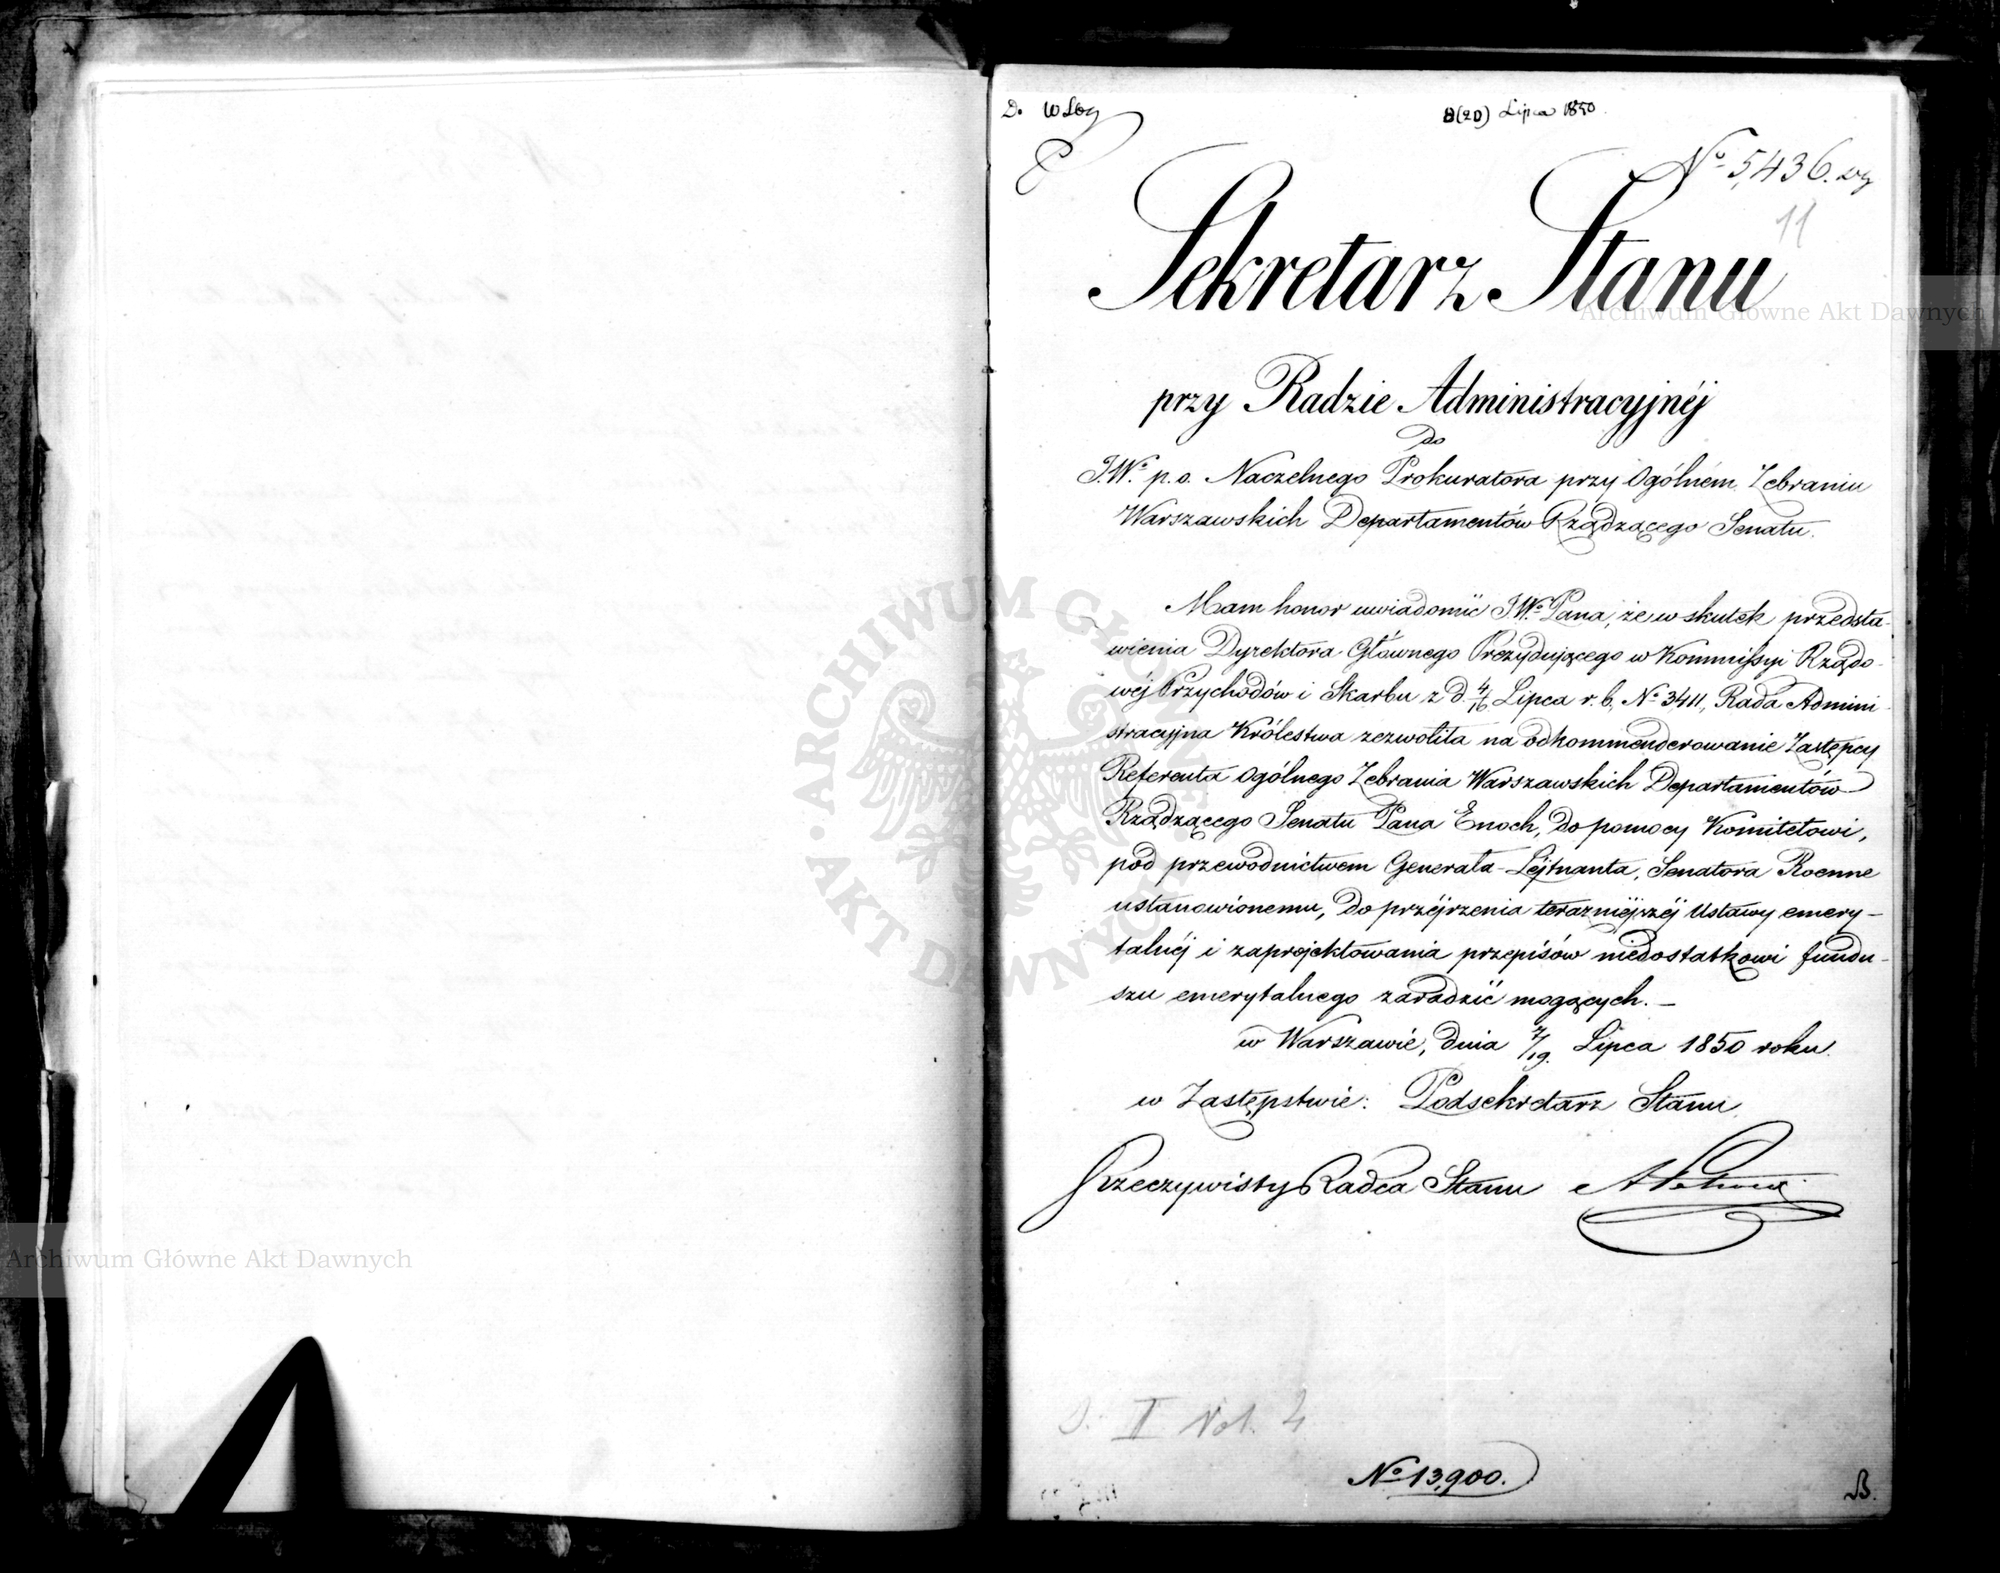 8(20) Lipca 1850
№ 5,436.
11
Sekretarz Stanu
przy Radzie Administracyjnéj
do
J.W.º p.o. Naczelnego Prokuratora przy Ogólném Zebraniu
Warszawskich Departamentów Rządzącego Senatu.
Mam honor uwiadomić J.W.º Pana, że w skutek przedsta-
wienia Dyrektora Głównego Prezydującego w Kommissyi Rządo-
wéj Przychodów i Skarbu z d. 4/16 Lipca r. b. № 3411, Rada Admini-
stracyjna Królestwa zezwoliła na odkommenderowanie Zastępcy
Referenta Ogólnego Zebrania Warszawskich Departamentów
Rządzącego Senatu Pana Enoch, do pomocy Komitetowi,
pod przewodnictwem Generała-Lejtnanta, Senatora Roenne
ustanowionemu, do przéjrzenia teraźniéjszéj Ustawy emery-
talnéj i zaprojektowania przepisów niedostatkowi fundu-
szu emerytalnego zaradzić mogących. —
w Warszawie, dnia 7/19. Lipca 1850 roku.
w Zastępstwie: Podsekretarz Stanu
Rzeczywisty Radca Stanu
II Vol. 4
№ 13,900.
B.
Archiwum Główne Akt Dawnych
Archiwum Główne Akt Dawnych
ARCHIWUM GŁÓWNE AKT DAWNYCH